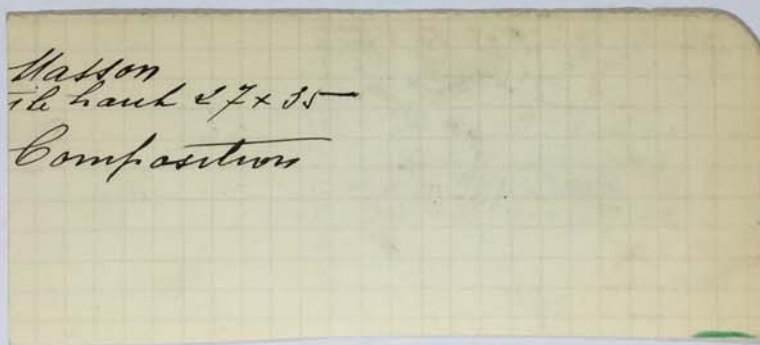 Masson
ile haut 27 x 35
Composition